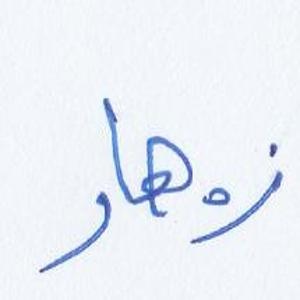 زه هار